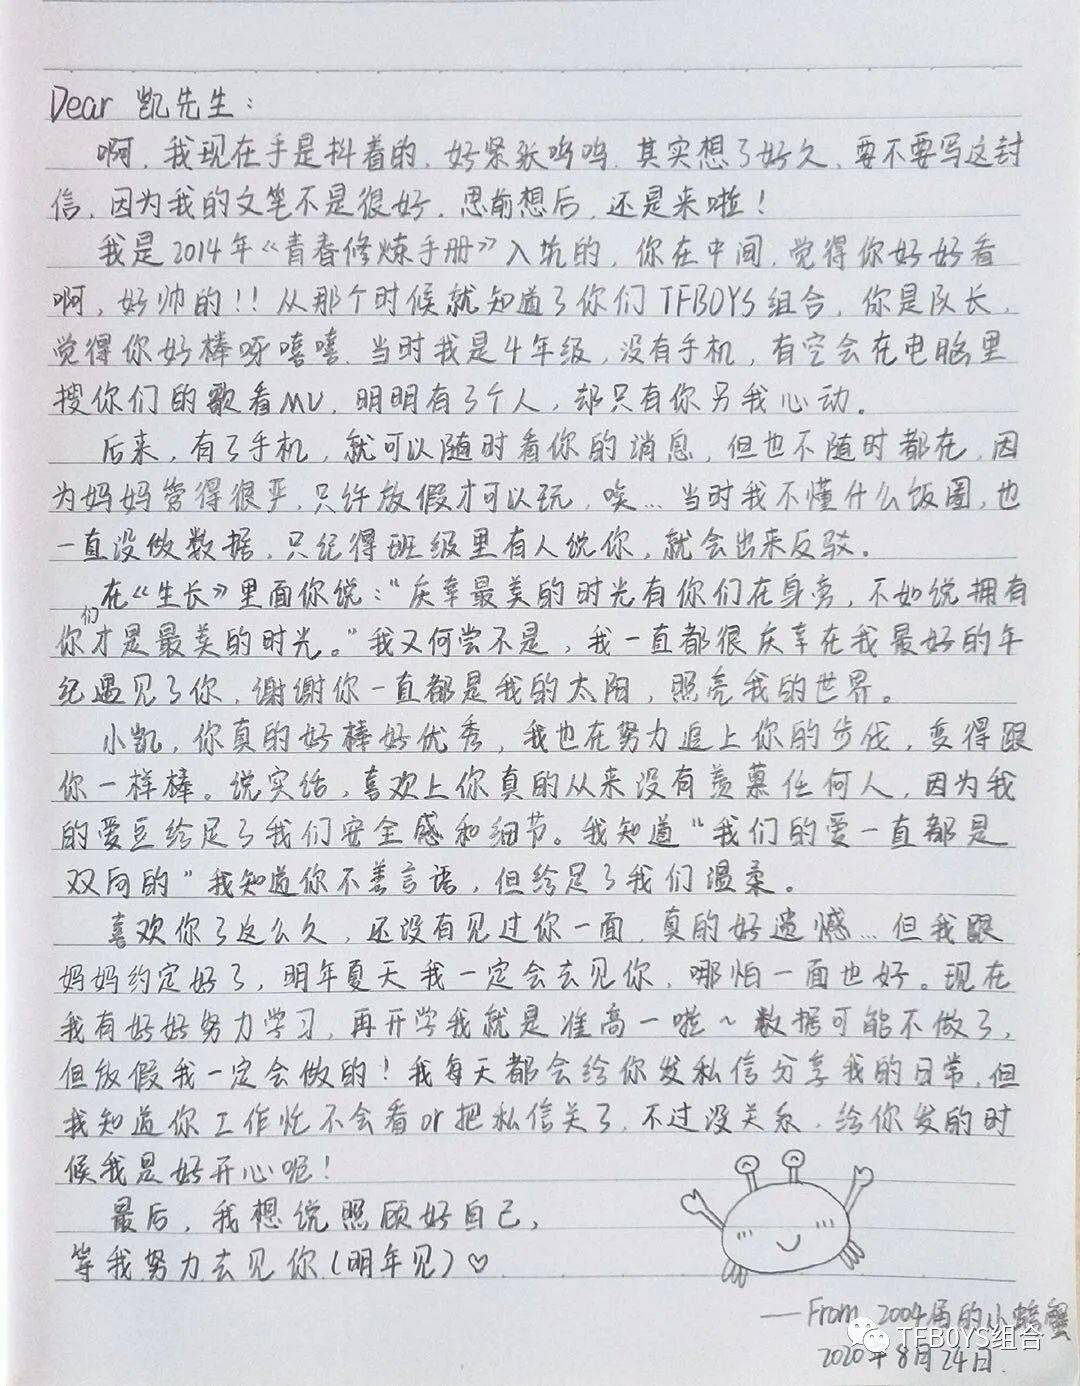 Dear 凯先生：
啊，我现在手是抖着的，好紧张呜呜，其实想了好久，要不要写这封
信，因为我的文笔不是很好，思前想后，还是来啦！
我是2014年《青春修炼手册》入坑的，你在中间，觉得你好好看
啊，好帅的！！从那个时候就知道了你们TFBOYS组合，你是队长，
觉得你好棒呀嘻嘻，当时我是4年级，没有手机，有空会在电脑里
搜你们的歌看MV，明明有3个人，却只有你另我心动。
后来，有了手机，就可以随时看你的消息，但也不随时都在，因
为妈妈管得很严，只许放假才可以玩，唉…当时我不懂什么饭圈，也
一直没做数据，只记得班级里有人说你，就会出来反驳。
在《生长》里面你说：“庆幸最美的时光有你们在身旁，不如说拥有
你们才是最美的时光。”我又何尝不是，我一直都很庆幸在我最好的年
纪遇见了你，谢谢你一直都是我的太阳，照亮我的世界。
小凯，你真的好棒好优秀，我也在努力追上你的步伐，变得跟
你一样棒。说实话，喜欢上你真的从来没有羡慕任何人，因为我
的爱豆给足了我们安全感和细节。我知道“我们的爱一直都是
双向的”我知道你不善言语，但给足了我们温柔。
喜欢你了这么久，还没有见过你一面，真的好遗憾…但我跟
妈妈约定好了，明年夏天我一定会去见你，哪怕一面也好。现在
我有好好努力学习，再开学我就是准高一啦～数据可能不做了，
但放假我一定会做的！我每天都会给你发私信分享我的日常，但
我知道你工作忙不会看or把私信关了，不过没关系，给你发的时
候我是好开心呢！
最后，我想说照顾好自己，
等我努力去见你（明年见）♡
——From 2004届的小螃蟹
TFBOYS组合
2020年8月24日